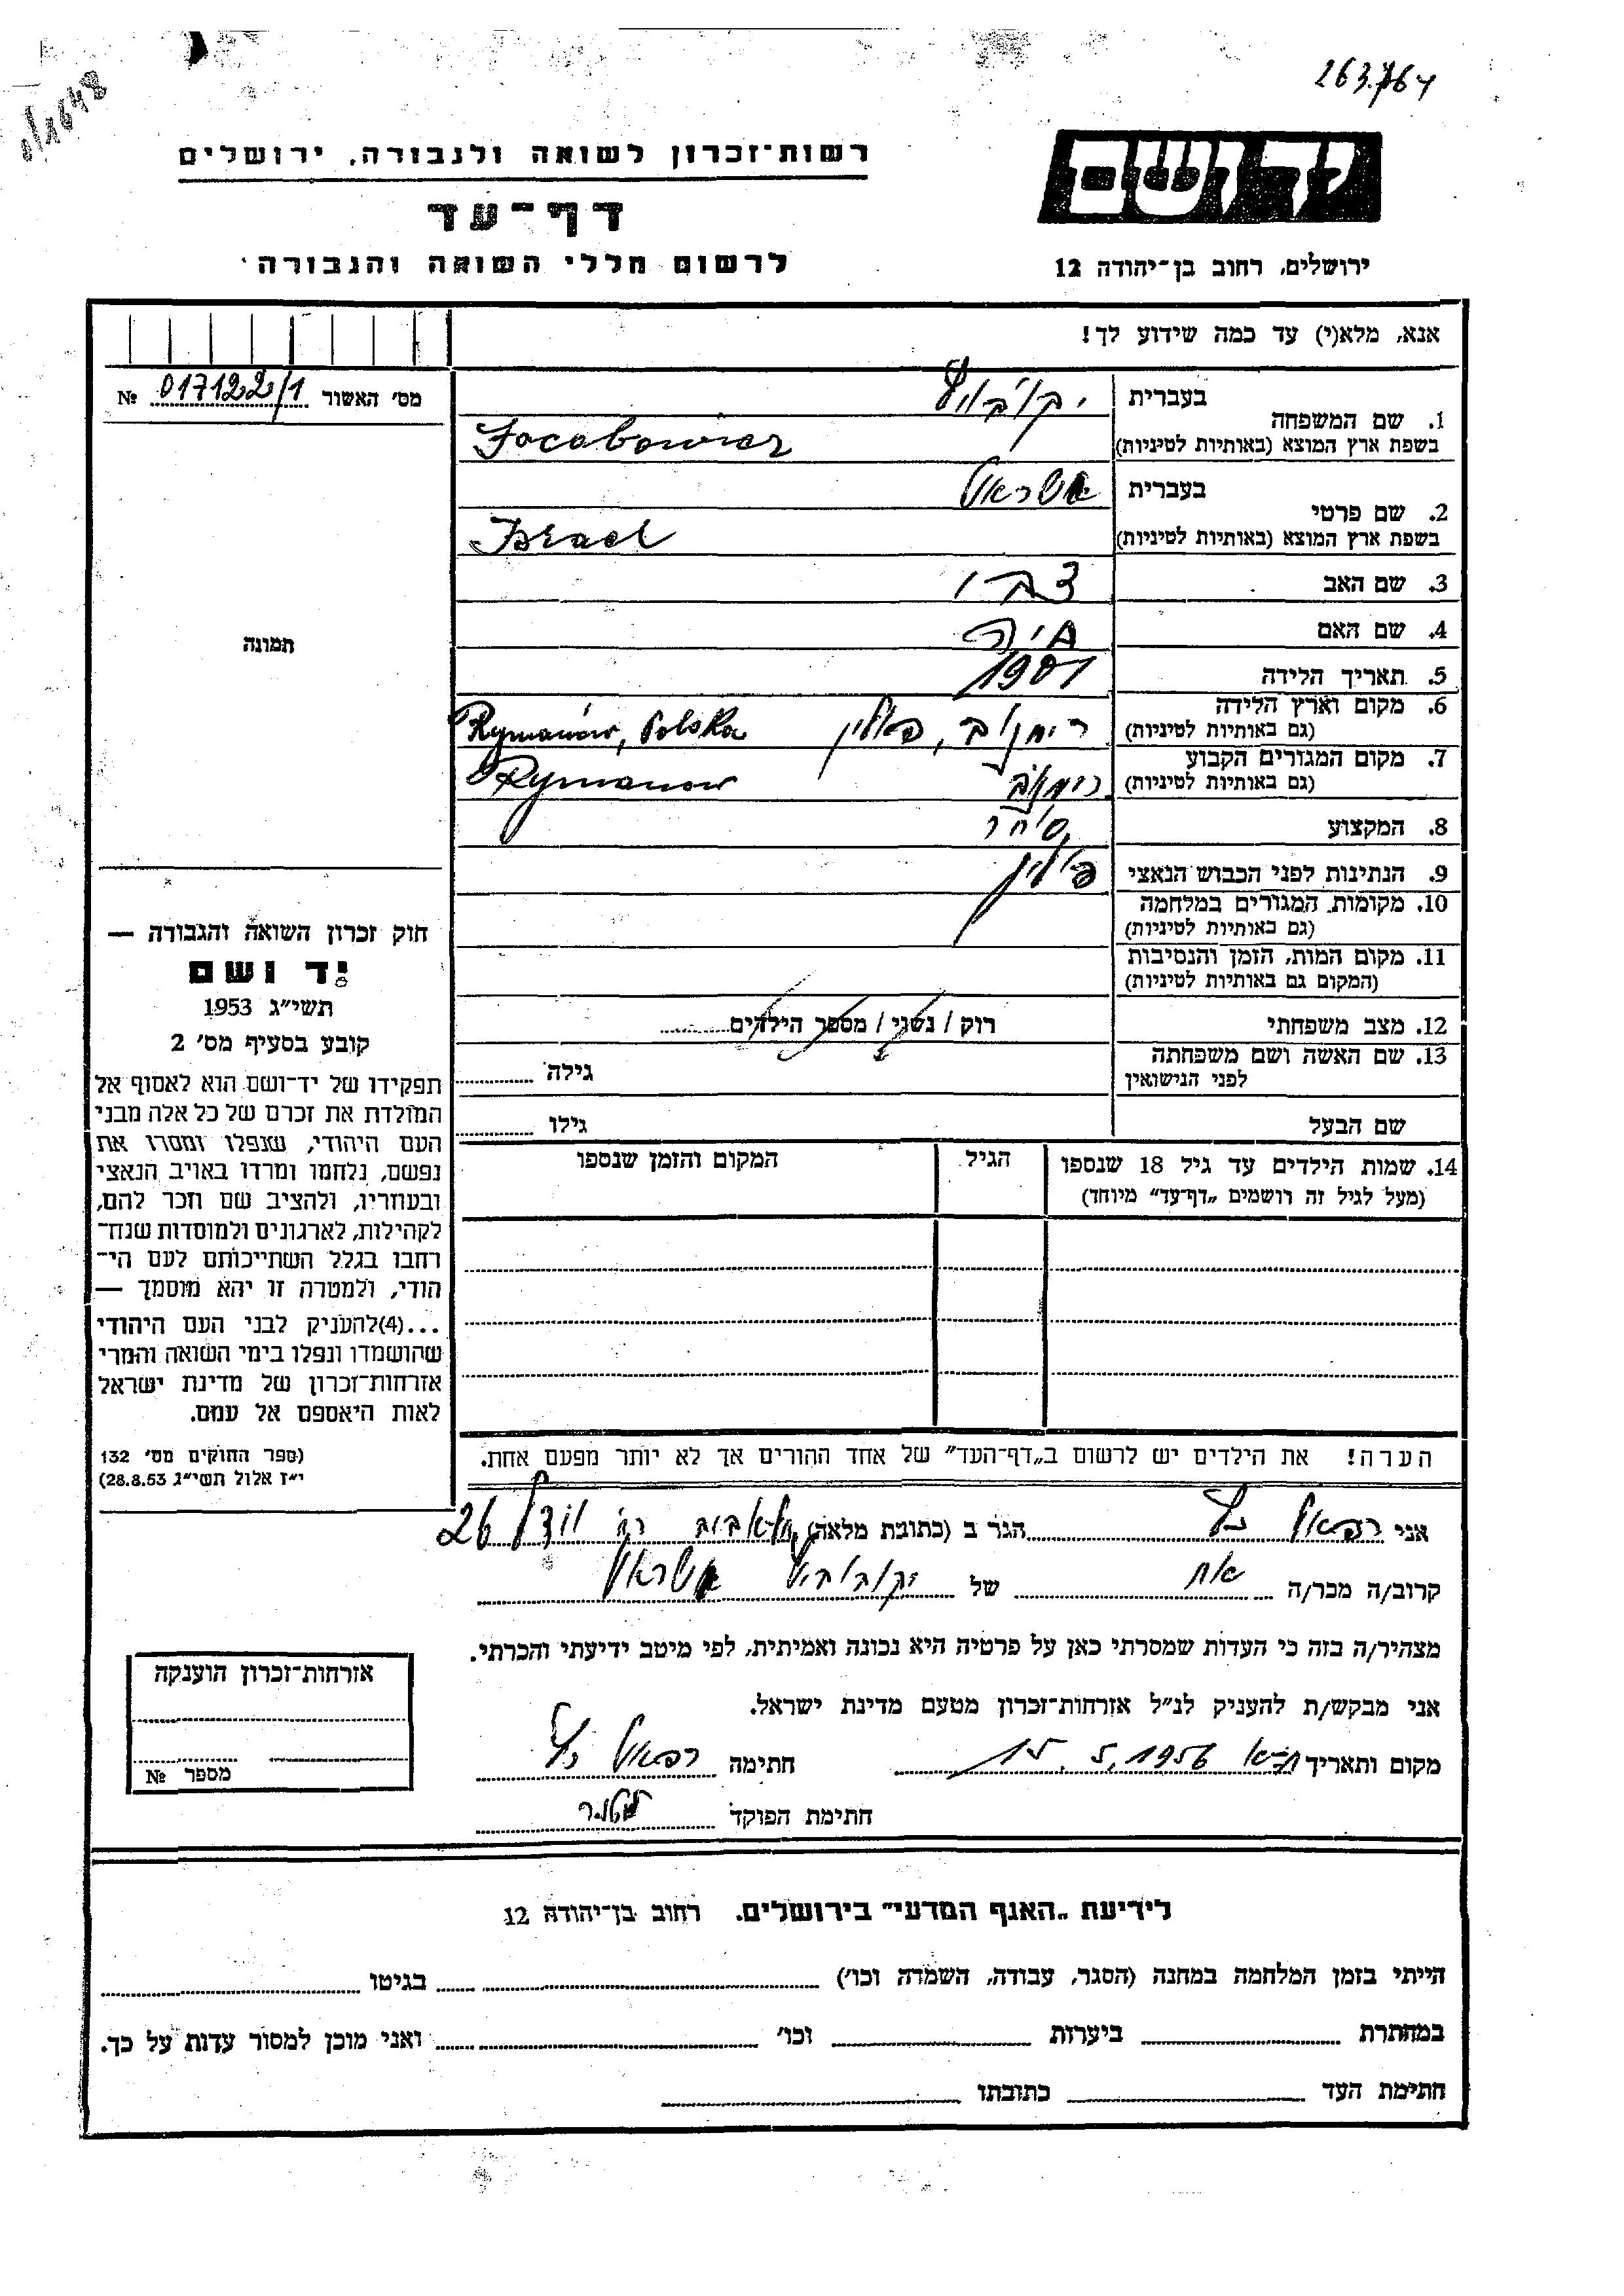 263.764
רשות־זכרון לשואה ולגבורה, ירושלים
יד ושם
דף־עד
לרשום חללי השואה והגבורה
ירושלים, רחוב בן־יהודה 12
אנא, מלא(י) עד כמה שידוע לך!
מס' האשור 017122/1 №
1. שם המשפחה
בעברית
בשפת ארץ המוצא (באותיות לטיניות) Jacobowicz
2. שם פרטי
בעברית ישראל
בשפת ארץ המוצא (באותיות לטיניות) Israel
3. שם האב צבי
4. שם האם חיה
5. תאריך הלידה 1901
6. מקום וארץ הלידה
(גם באותיות לטיניות) רימנוב, פולין Rymanów, Polska
7. מקום המגורים הקבוע
(גם באותיות לטיניות) רימנוב Rymanow
8. המקצוע סוחר
9. הנתינות לפני הכבוש הנאצי פולין
10. מקומות המגורים במלחמה
(גם באותיות לטיניות)
11. מקום המות, הזמן והנסיבות
(המקום גם באותיות לטיניות)
12. מצב משפחתי רוק / נשוי / מספר הילדים
13. שם האשה ושם משפחתה
לפני הנישואין גילה
שם הבעל גילו
14. שמות הילדים עד גיל 18 שנספו הגיל המקום והזמן שנספו
(מעל לגיל זה רושמים „דף־עד" מיוחד)
הערה! את הילדים יש לרשום ב„דף־העד" של אחד ההורים אך לא יותר מפעם אחת.
תמונה
חוק זכרון השואה והגבורה —
יד ושם
תשי״ג 1953
קובע בסעיף מס' 2
תפקידו של יד־ושם הוא לאסוף אל
המולדת את זכרם של כל אלה מבני
העם היהודי, שנפלו ומסרו את
נפשם, נלחמו ומרדו באויב הנאצי
ובעוזריו, ולהציב שם וזכר להם,
לקהילות, לארגונים ולמוסדות שנח־
רבו בגלל השתייכותם לעם הי־
הודי, ולמטרה זו יהא מוסמך —
...(4)להעניק לבני העם היהודי
שהושמדו ונפלו בימי השואה והמרי
אזרחות־זכרון של מדינת ישראל
לאות היאספם אל עמם.
(ספר החוקים מס' 132
י״ז אלול תשי״ג 28.8.53)
אני רפאל הגר ב (כתובת מלאה) רח' 26
קרוב/ה מכר/ה אח של ישראל
מצהיר/ה בזה כי העדות שמסרתי כאן על פרטיה היא נכונה ואמיתית, לפי מיטב ידיעתי והכרתי.
אני מבקש/ת להעניק לנ״ל אזרחות־זכרון מטעם מדינת ישראל.
מקום ותאריך ת״א 15.5.1956 חתימה רפאל
חתימת הפוקד
אזרחות־זכרון הוענקה
מספר №
לידיעת „האגף המדעי" בירושלים. רחוב בן־יהודה 12
הייתי בזמן המלחמה במחנה (הסגר, עבודה, השמדה וכו') בגיטו
במחתרת ביערות וכו' ואני מוכן למסור עדות על כך.
חתימת העד כתובתו